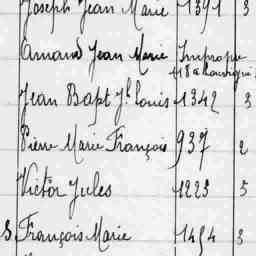 Joseph Jean Marie 1391 3
Armand Jean Marie Impropre
Jean Bapt Jh Louis 1342 3
Pierre Marie François 937 2
Victor Jules 1223 5
S François Marie 1454 3